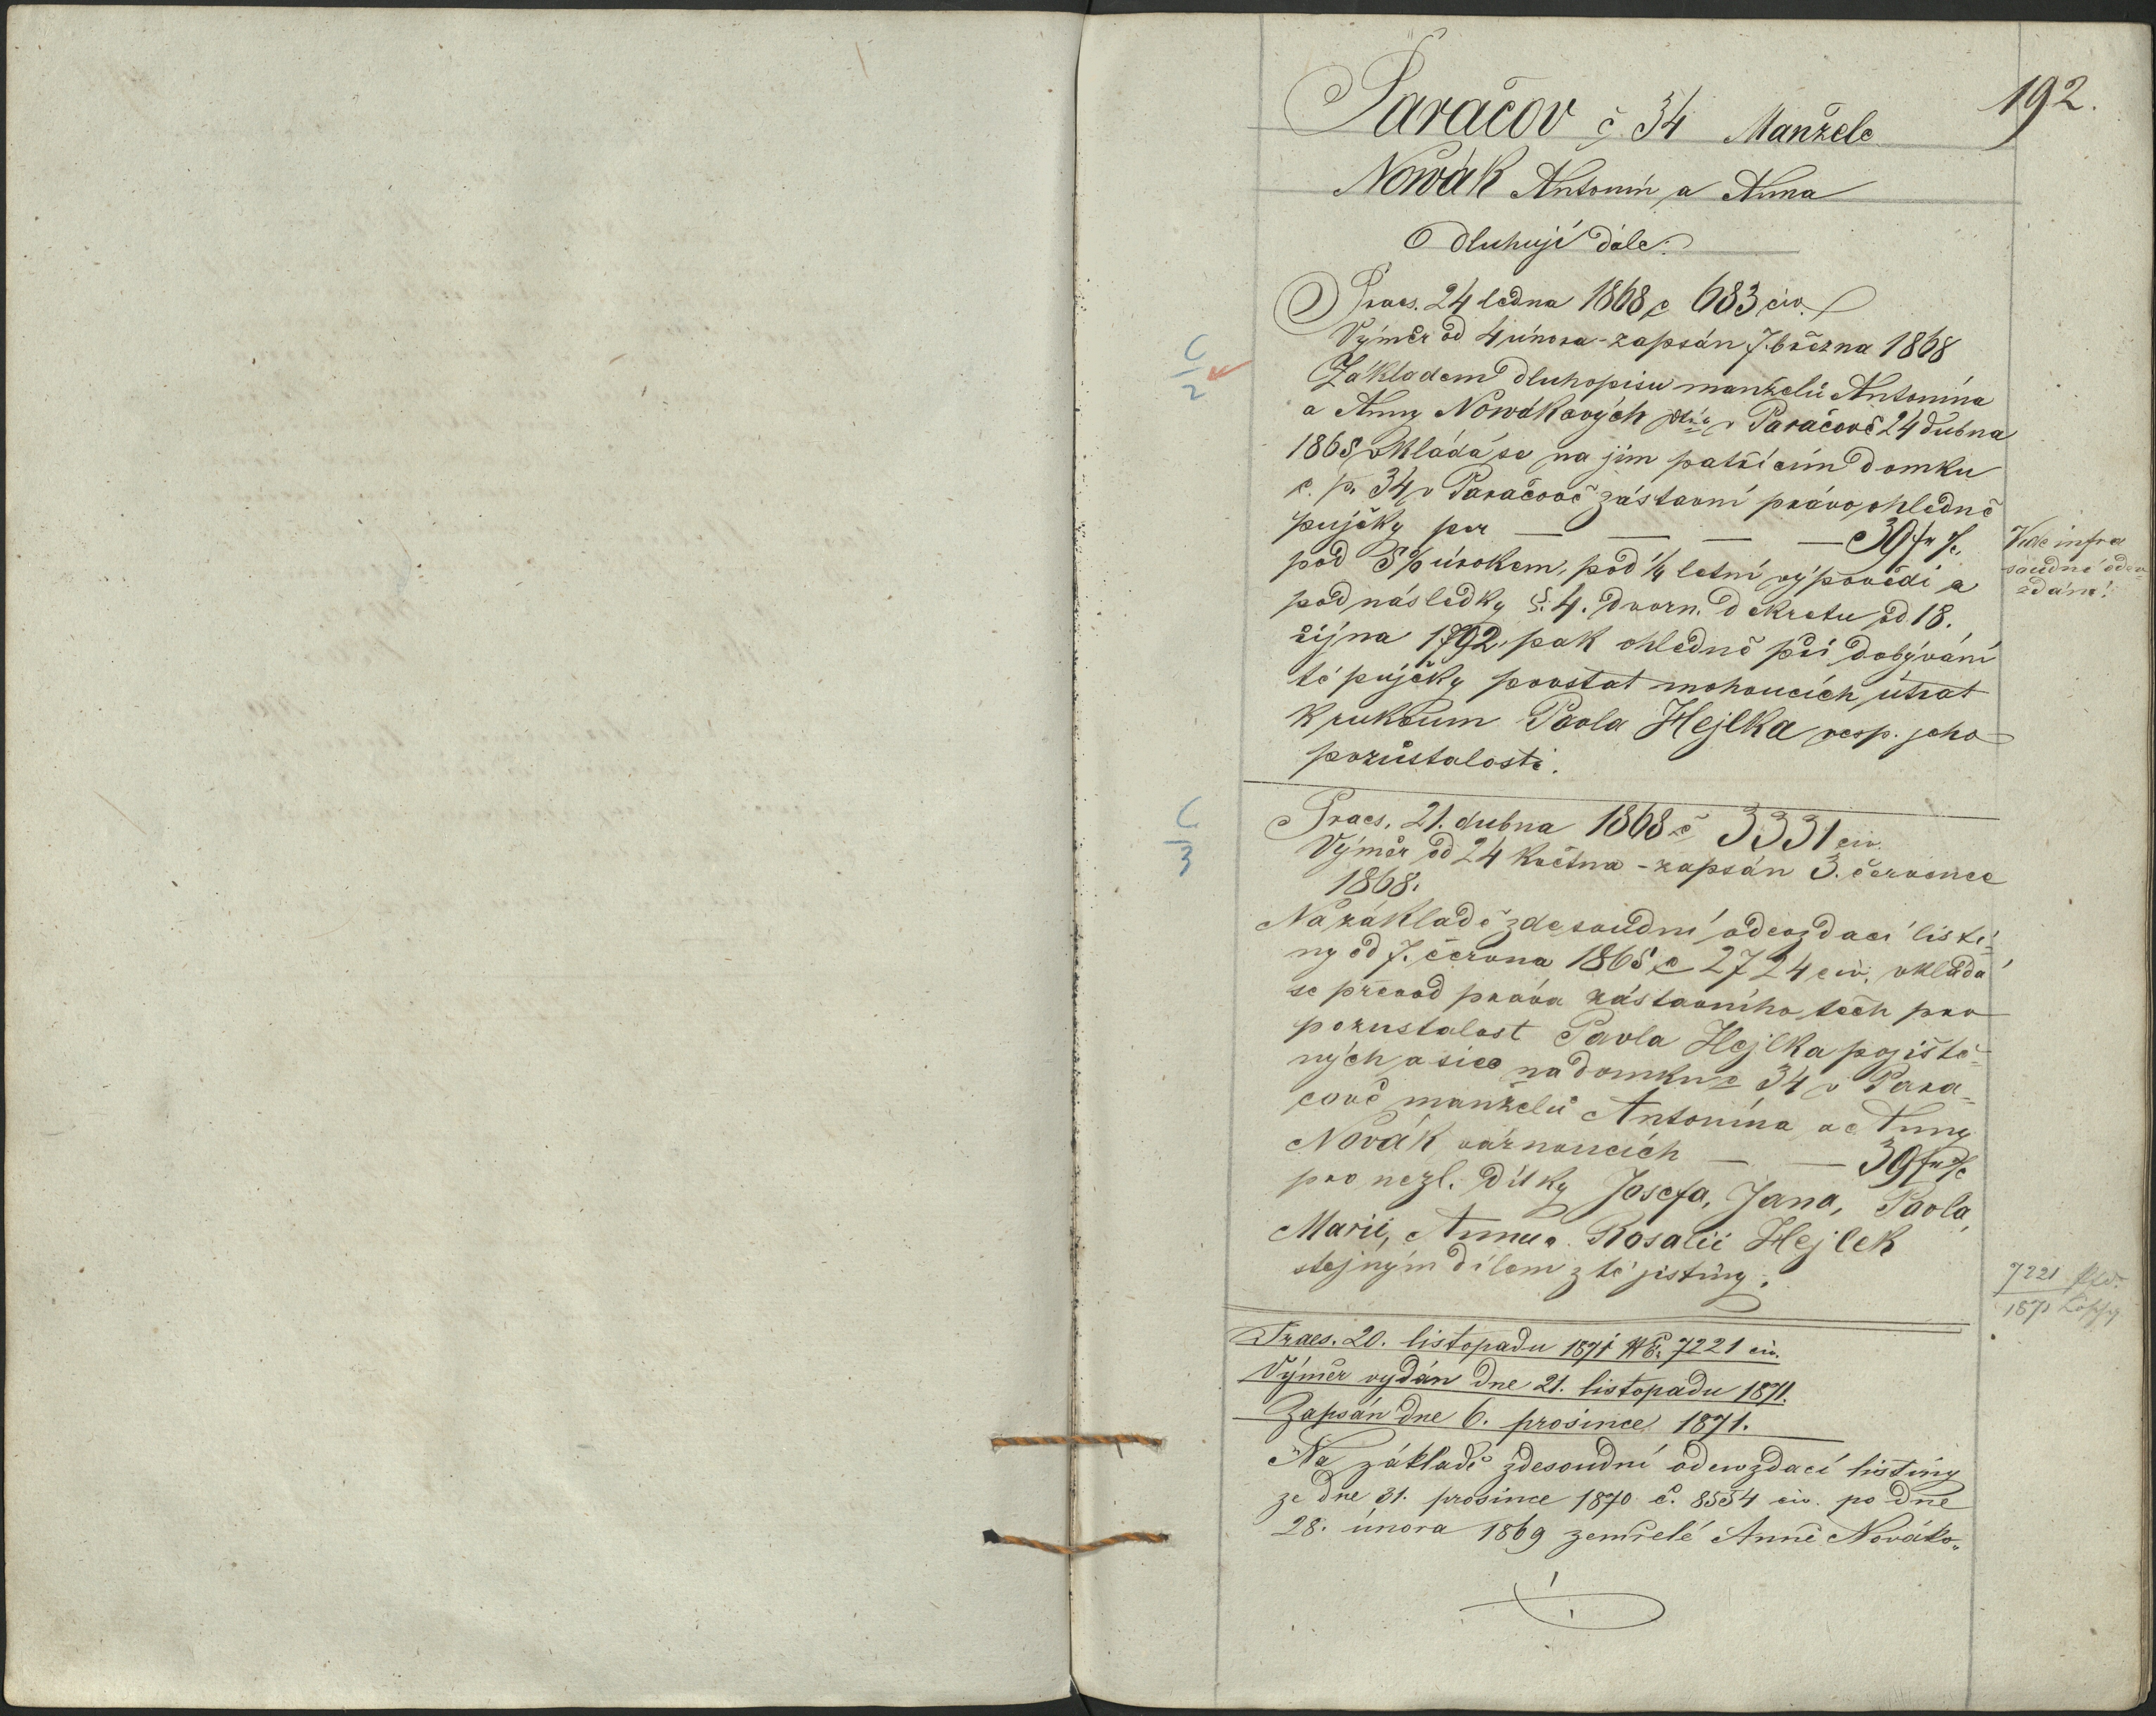 192.
Paračov č. 34 Manželé
Nowák Antonín a Anna
dluhují dále:
Praes. 24 ledna 1868 č 683 civ.
Výměr od 4 února - zapsán 7. března 1868
C
2
Základem dluhopisu manželů Antonína
a Anny Nowákových v Paračově 24 dubna
1865 vkládá se na jim patřícím domku
č. p. 34 v Paračově zástavní právo ohledně
pujčky per — — — — 39 fr %
Vide infra
soudné odev-
zdání!
pod 5% úrokem, pod ¼ letní výpovědí a
pod následky §. 4. dvorn. dekretu od 18.
října 1792, pak ohledně při dobývání
té pujčky povstat mohoucích útrat
k rukoum Pavla Hejlka resp. jeho
pozůstalosti.
C
3
Praes. 21. dubna 1868 č 3331 civ.
Výměr od 24 května - zapsán 3. července
1868.
Na základě zdesoudní odevzdací listi-
ny od 7. června 1865 č 2724 civ. vkládá
se převod práva zástavního těch pro
pozustalost Pavla Hejlka pojiště-
ných a sice na domku č 34 v Para-
čově manželů Antonína a Anny
Novák váznoucích — — 39 fr %
pro nezl. dítky Josefa, Jana, Pavla,
Marii, Annu a Rosalii Hejlek
stejným dílem z té jistiny.
7221
1871
Praes. 20. listopadu 1871 N E. 7221 civ.
Výměr vydán dne 21. listopadu 1871.
Zapsán dne 6. prosince 1871.
Na základě zdesoudní odevzdací listiny
ze dne 31. prosince 1870 č. 8554 civ. po dne
28. února 1869 zemřelé Anně Nováko-